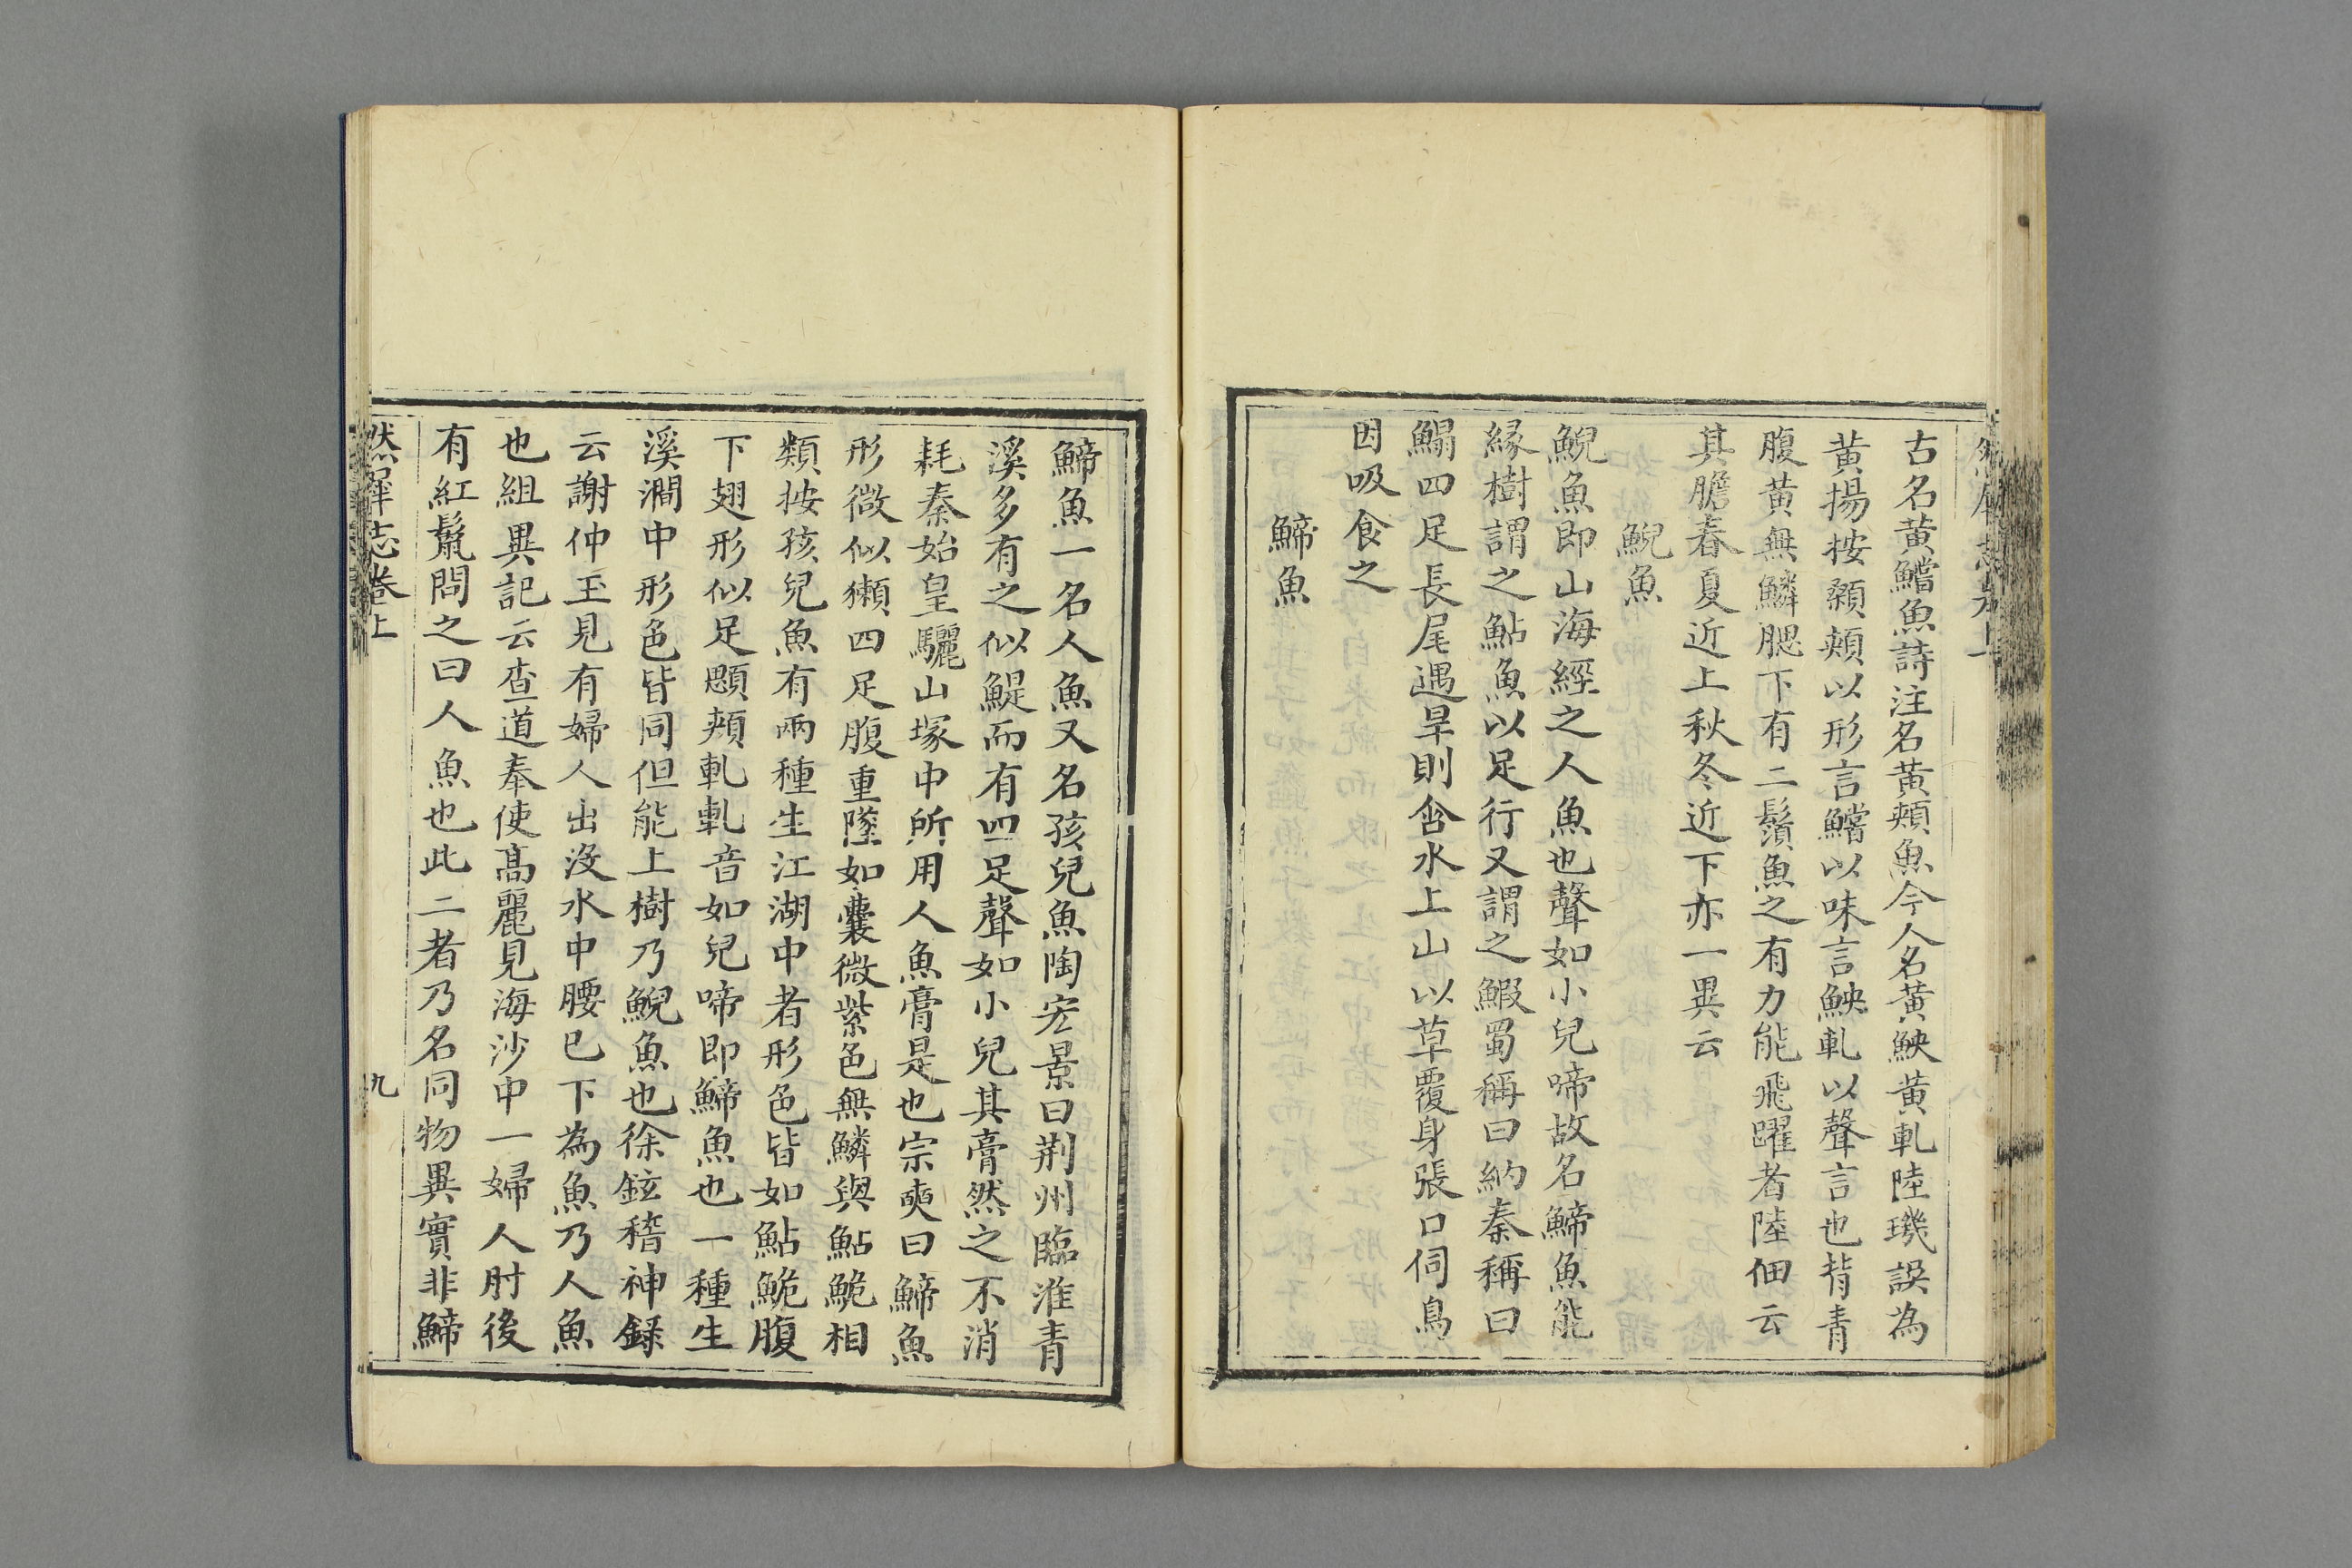 然犀志卷上
古名黃鱨魚詩注名黃頰魚今人名黃鮧黃軋陸璣誤為
黃揚按顙頰以形言鱨以味言鮧軋以聲言也背青
腹黃無鱗腮下有二鬚魚之有力能飛躍者陸佃云
其膽春夏近上秋冬近下亦一異云
鯢魚
鯢魚即山海經之人魚也聲如小兒啼故名䱱魚能
緣樹謂之鮎魚以足行又謂之鰕蜀稱曰納秦稱曰
鰨四足長尾遇旱則含水上山以草覆身張口伺鳥
因吸食之
䱱魚
䱱魚一名人魚又名孩兒魚陶宏景曰荆州臨淮青
溪多有之似鯷而有四足聲如小兒其膏然之不消
耗秦始皇驪山塚中所用人魚膏是也宗奭曰䱱魚
形微似獺四足腹重墜如囊微紫色無鱗與鮎鮠相
類按孩兒魚有兩種生江湖中者形色皆如鮎鮠腹
下翅形似足顋頰軋軋音如兒啼即䱱魚也一種生
溪澗中形色皆同但能上樹乃鯢魚也徐鉉稽神録
云謝仲玉見有婦人出沒水中腰巳下為魚乃人魚
也組異記云查道奉使髙麗見海沙中一婦人肘後
有紅鬛問之曰人魚也此二者乃名同物異實非䱱
然犀志卷上
九